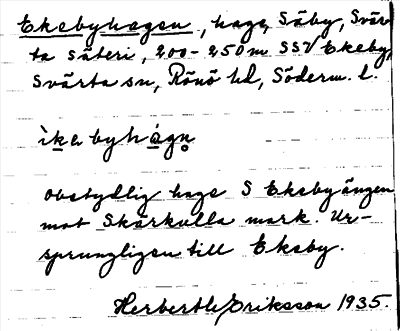 Ekebyhagen, hage, Säby, Svär-
ta säteri, 200-250 m SSV Ekeby,
Svärta sn, Rönö hd, Söderm. l.
ìkebyhágn̥
obetydlig hage S Ekebyängen
mot Skärkulla mark. Ur-
sprungligen till Ekeby.
Herberth Eriksson 1935.